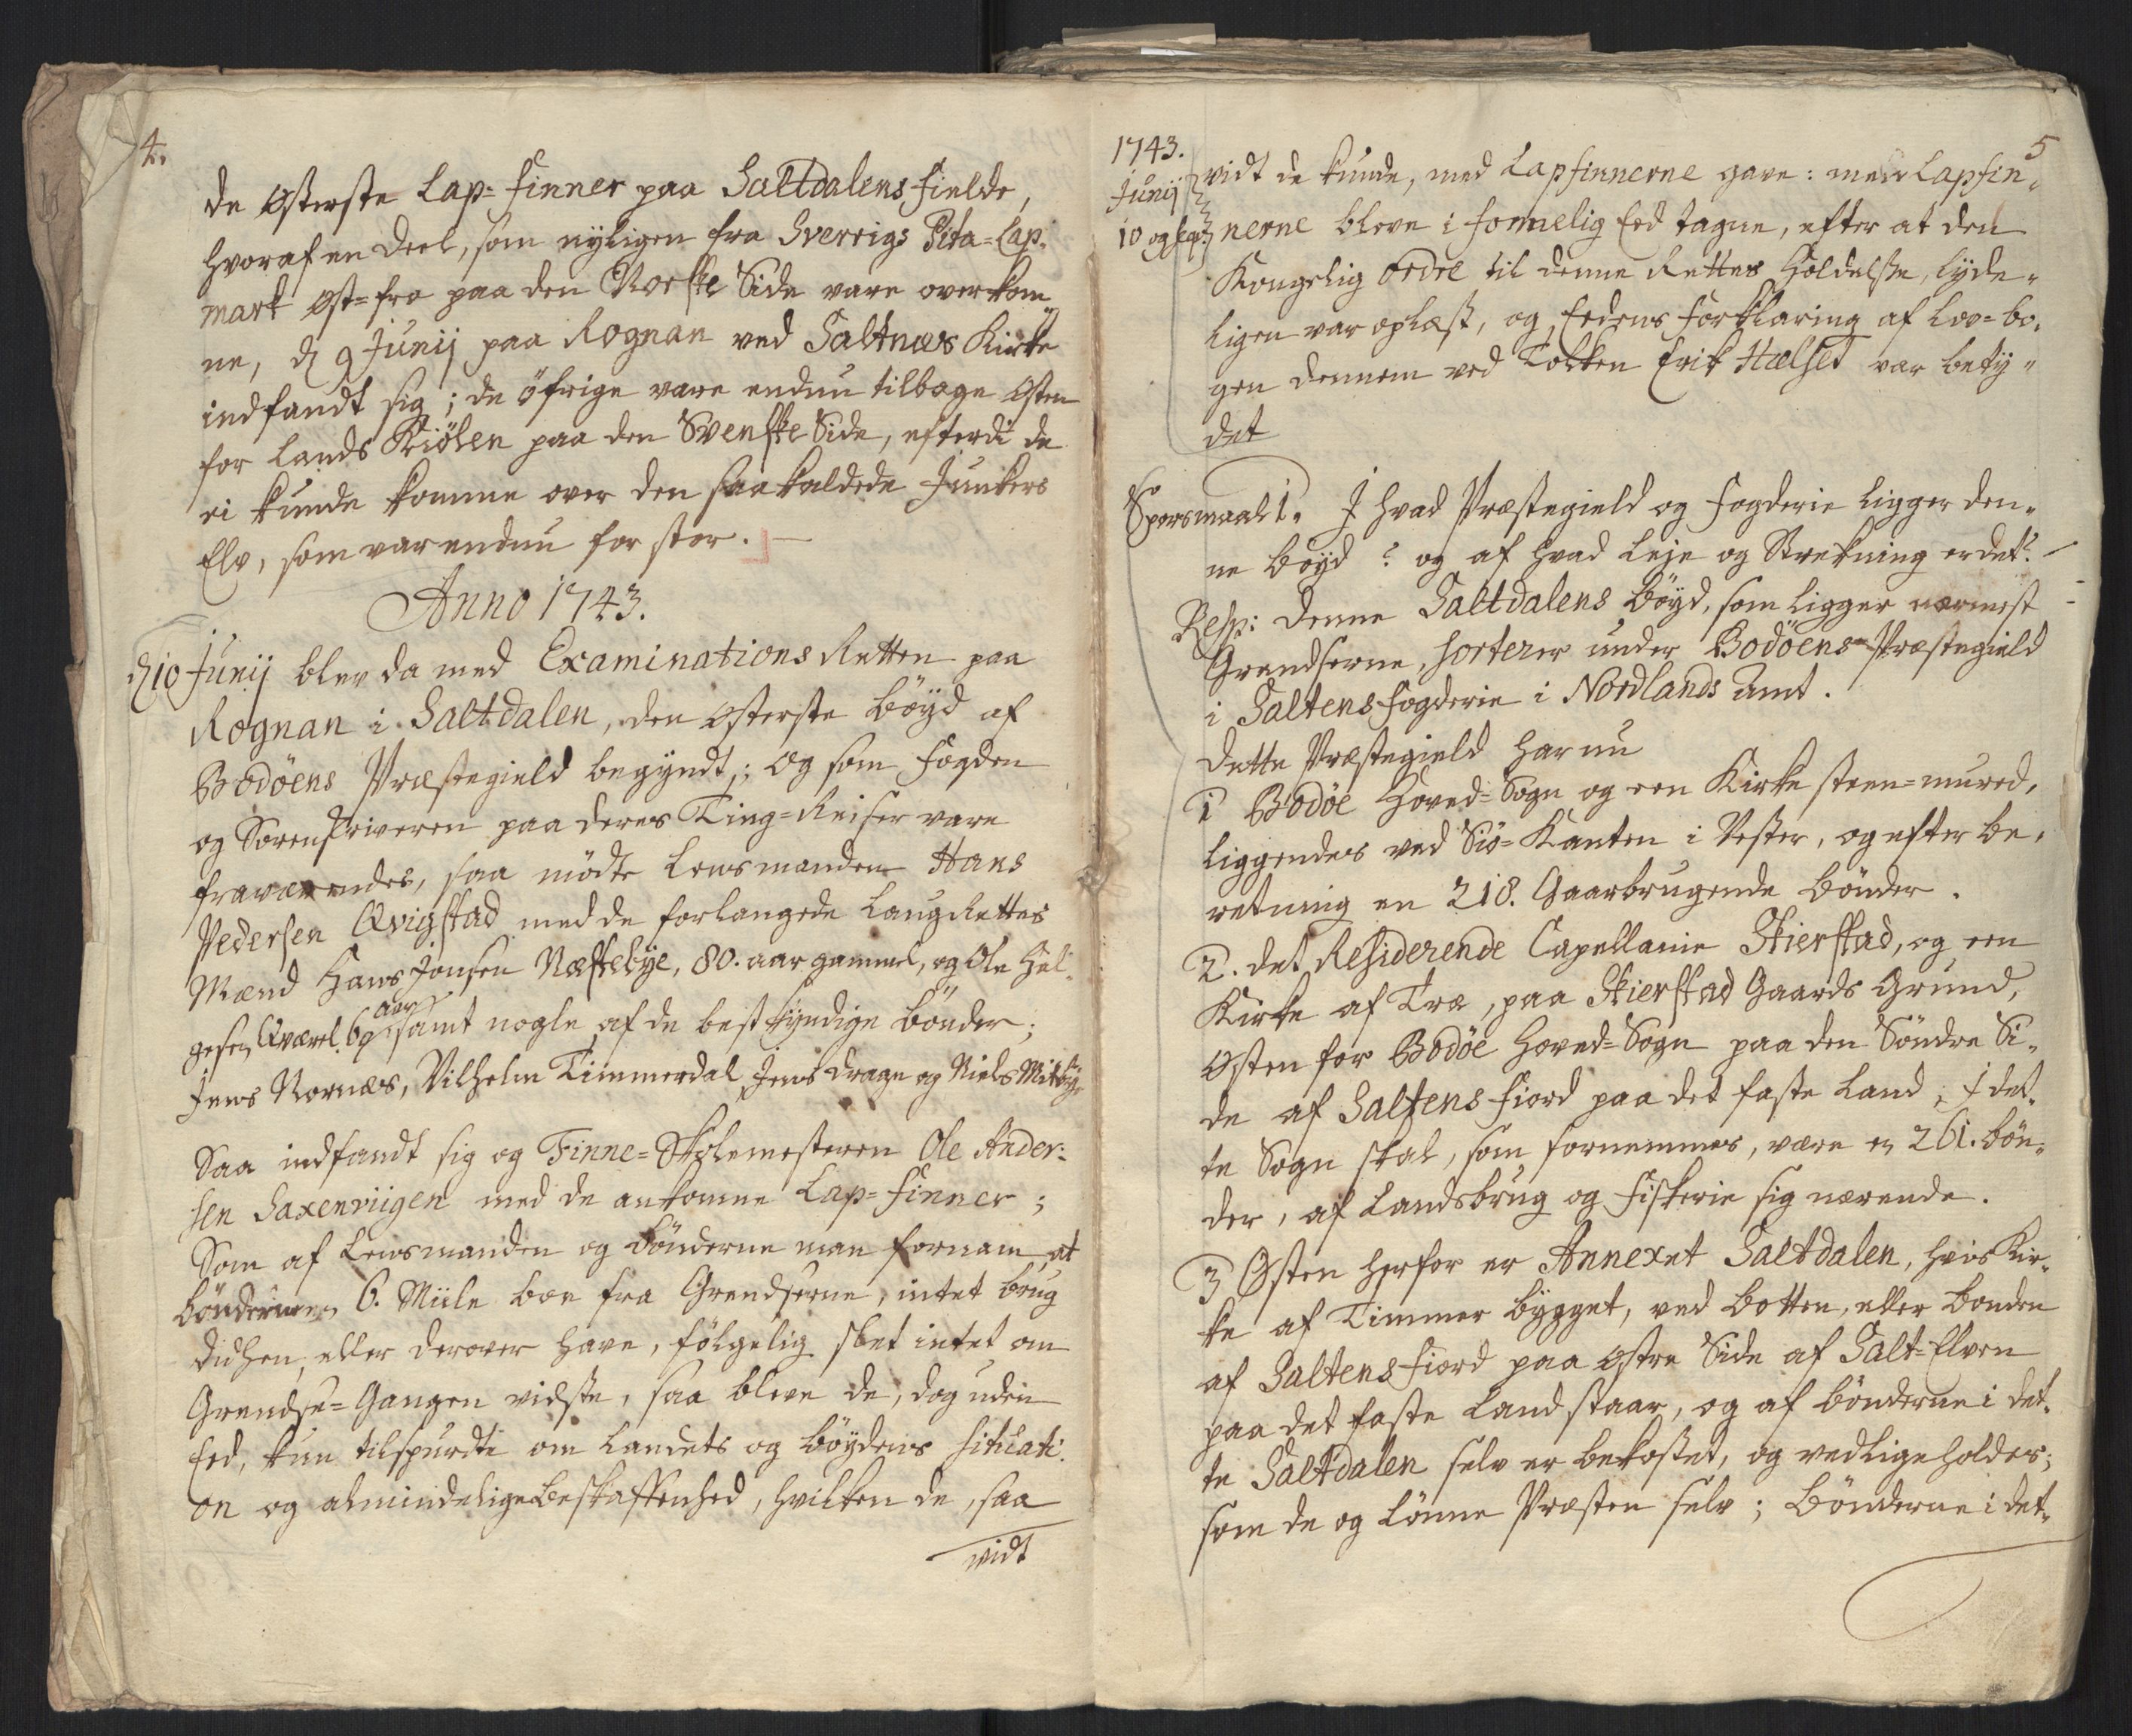 4.
de Østerste Lap-Finner paa Saltdalens Fielde,
hvoraf en Deel, som nyligen fra Sverrigs Pita-Lap-
mark Øst-fra paa den Norske Side vare overkom
ne, d 9 Junij paa Rognan ved Saltnæs Kirke
indfandt sig; de öfrige vare endnu tilbage Østen
for Lands Kiölen paa den Svenske Side, efterdi de
ei kunde komme over den saakaldede Junkers
Elv, som var endnu for stor. —
Anno 1743.
d 10 Junij blev da med Examinations Retten paa
Rognan i Saltdalen, den Østerste böyd af
Bodöens Præstegield begyndt; og som Fogden
og Sorenskriveren paa deres Ting-Reiser vare
fraværendes, saa mödte Lensmanden Hans
Pedersen Qvigstad med de forlangede LaugRettes
Mænd Hans Jonsen Næstebye, 80. aar gammel, og Ole Hel-
gesen Qværl. 69 aar samt nogle af de best kyndige bönder;
Jens Nornæs, Vilhelm Timmerdal, Jens Drage og Niels Mitbye.
Saa indfandt sig og Finne-Skolemesteren Ole Ander-
sen Saxenviigen med de ankomne Lap-Finner;
Som af Lensmanden og bönderne man fornam, at
bönderne 6. Miile boe fra Grendserne, intet brug
didhen, eller derover have, fölgelig slet intet om
Grendse-Gangen vidste, saa bleve de, dog uden
Eed, kun tilspurdte om Landets og böydens Situati-
on og almindelige beskaffenhed, hvilken de, saa
vidt
5
1743.
Junij
10 og seq:
vidt de kunde, med Lapfinnerne gave: men Lapfin-
nerne bleve i formelig Eed tagne, efter at den
Kongelig Ordre til denne Rettes Holdelse, lyde-
ligen var oplæst, og Eedens Forklaring af Lov-bo-
gen dennem ved Tolken Erik Hælset var bety-
det
Spørsmaal 1. I hvad Præstegield og Fogderie ligger den-
ne böyd? og af hvad Leje og Strekning er det?
Resp: Denne Saltdalens böyd, som ligger nærmest
Grendserne, sorterer under Bodöens Præstegield
i Saltens Fogderie i Nordlands Amt.
Dette Præstegield har nu
1 Bodöe Hoved-Sogn og een Kirke steen-mured,
liggendes ved Siö-Kanten i Vester, og efter be-
retning en 218. Gaarbrugende bönder.
2. det Residerende Capellanie Skierstad, og een
Kirke af Træ, paa Skierstad Gaards Grund,
Østen for Bodöe Hoved-Sogn paa den Söndre Si-
de af Saltens Fiord paa det faste Land, I det-
te Sogn skal, som fornemmes, være en 261. bön-
der, af Landsbrug og Fiskerie sig nærende.
3 Østen herfor er Annexet Saltdalen, hvis Kir-
ke af Timmer bygget, ved botten, eller bonden
af Saltens Fiord paa Østre Side af Salt-Elven
paa det faste Land staar, og af bönderne i det-
te Saltdalen selv er bekostet, og vedligeholdes;
som de og lönne Præsten selv; Bönderne i det-